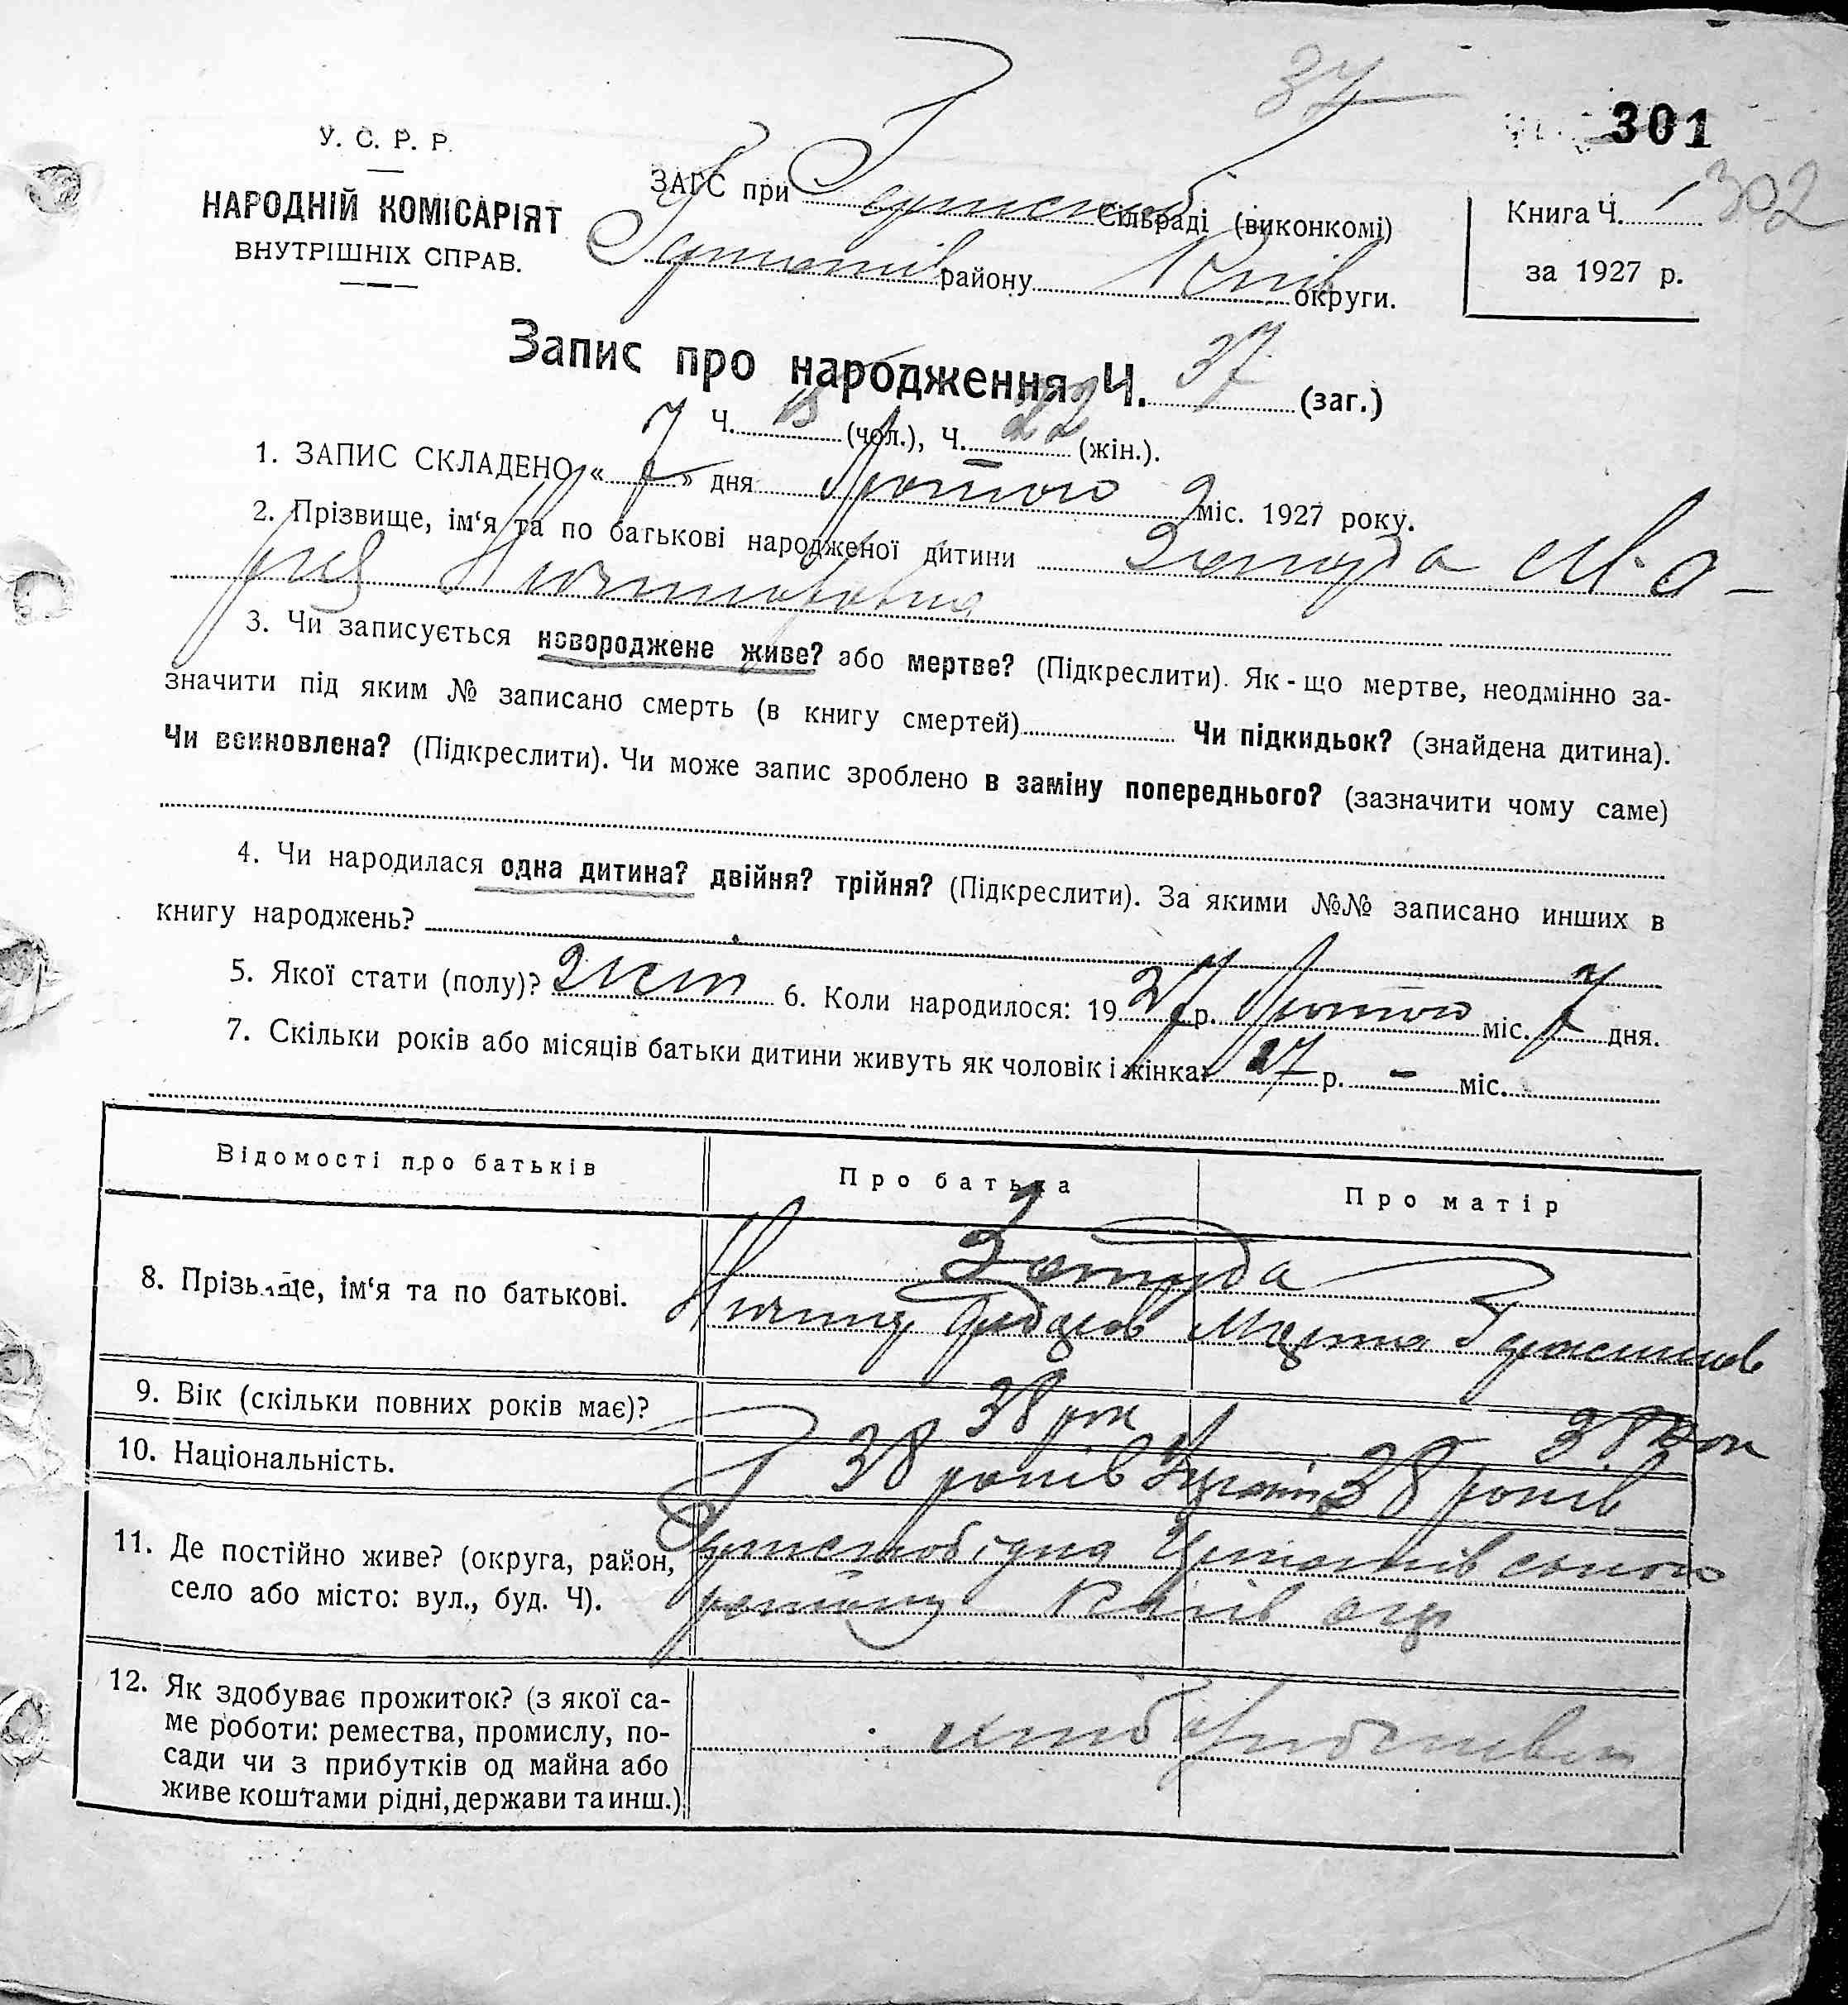 37
301
302
У. С. Р. Р.
НАРОДНІЙ КОМІСАРІЯТ
ВНУТРІШНІХ СПРАВ.
ЗАГС при Сільраді (виконкомі)
району Київ округи.
Книга Ч. 1
за 1927 р.
Запис про народження Ч. 37 (заг.)
Ч. 15 (чол.), Ч. 22 (жін.).
1. ЗАПИС СКЛАДЕНО „ 7 " дня Лютого 2 міс. 1927 року.
2. Прізвище, ім'я та по батькові народженої дитини Ма-
рія
3. Чи записується новороджене живе? або мертве? (Підкреслити). Як-що мертве, неодмінно за-
значити під яким № записано смерть (в книгу смертей) Чи підкидьок? (знайдена дитина).
Чи всиновлена? (Підкреслити). Чи може запис зроблено в заміну попереднього? (зазначити чому саме)
4. Чи народилася одна дитина? двійня? трійня? (Підкреслити). За якими №№ записано инших в
книгу народжень?
5. Якої стати (полу)? жін 6. Коли народилося: 1927 р. Лютого міс. 7 дня.
7. Скільки років або місяців батьки дитини живуть як чоловік і жінка: 17 р. - міс.
Відомості про батьків Про батька Про матір
8. Прізвище, ім'я та по батькові.
9. Вік (скільки повних років має)? 38 рок 38 рок
10. Національність. 38 років 38 років
11. Де постійно живе? (округа, район,
село або місто: вул., буд. Ч). району Київ окр
12. Як здобуває прожиток? (з якої са-
ме роботи: ремества, промислу, по-
сади чи з прибутків од майна або
живе коштами рідні, держави та инш.)